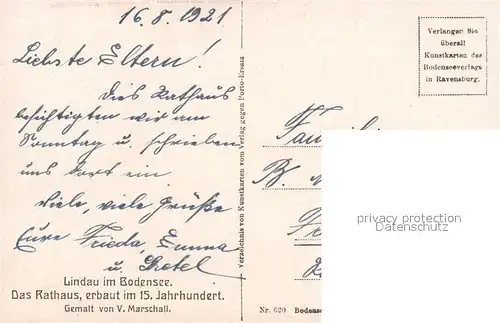 16.8.1921
Liebste Eltern!
Dies Rathaus
besichtigten wir am
Sonntag u. schrieben
uns dort ein
Viele, viele Grüße
Eure Frieda, Emma
u. Gretel
Lindau im Bodensee.
Das Rathaus, erbaut im 15. Jahrhundert.
Gemalt von V. Marschall.
Verzeichnis von Kunstkarten vom Verlag gegen Porto-Ersatz
Verlangen Sie
überall
Kunstkarten des
Bodenseeverlags
in Ravensburg.
B.
privacy protection
Datenschutz
Nr. 620 Bodense